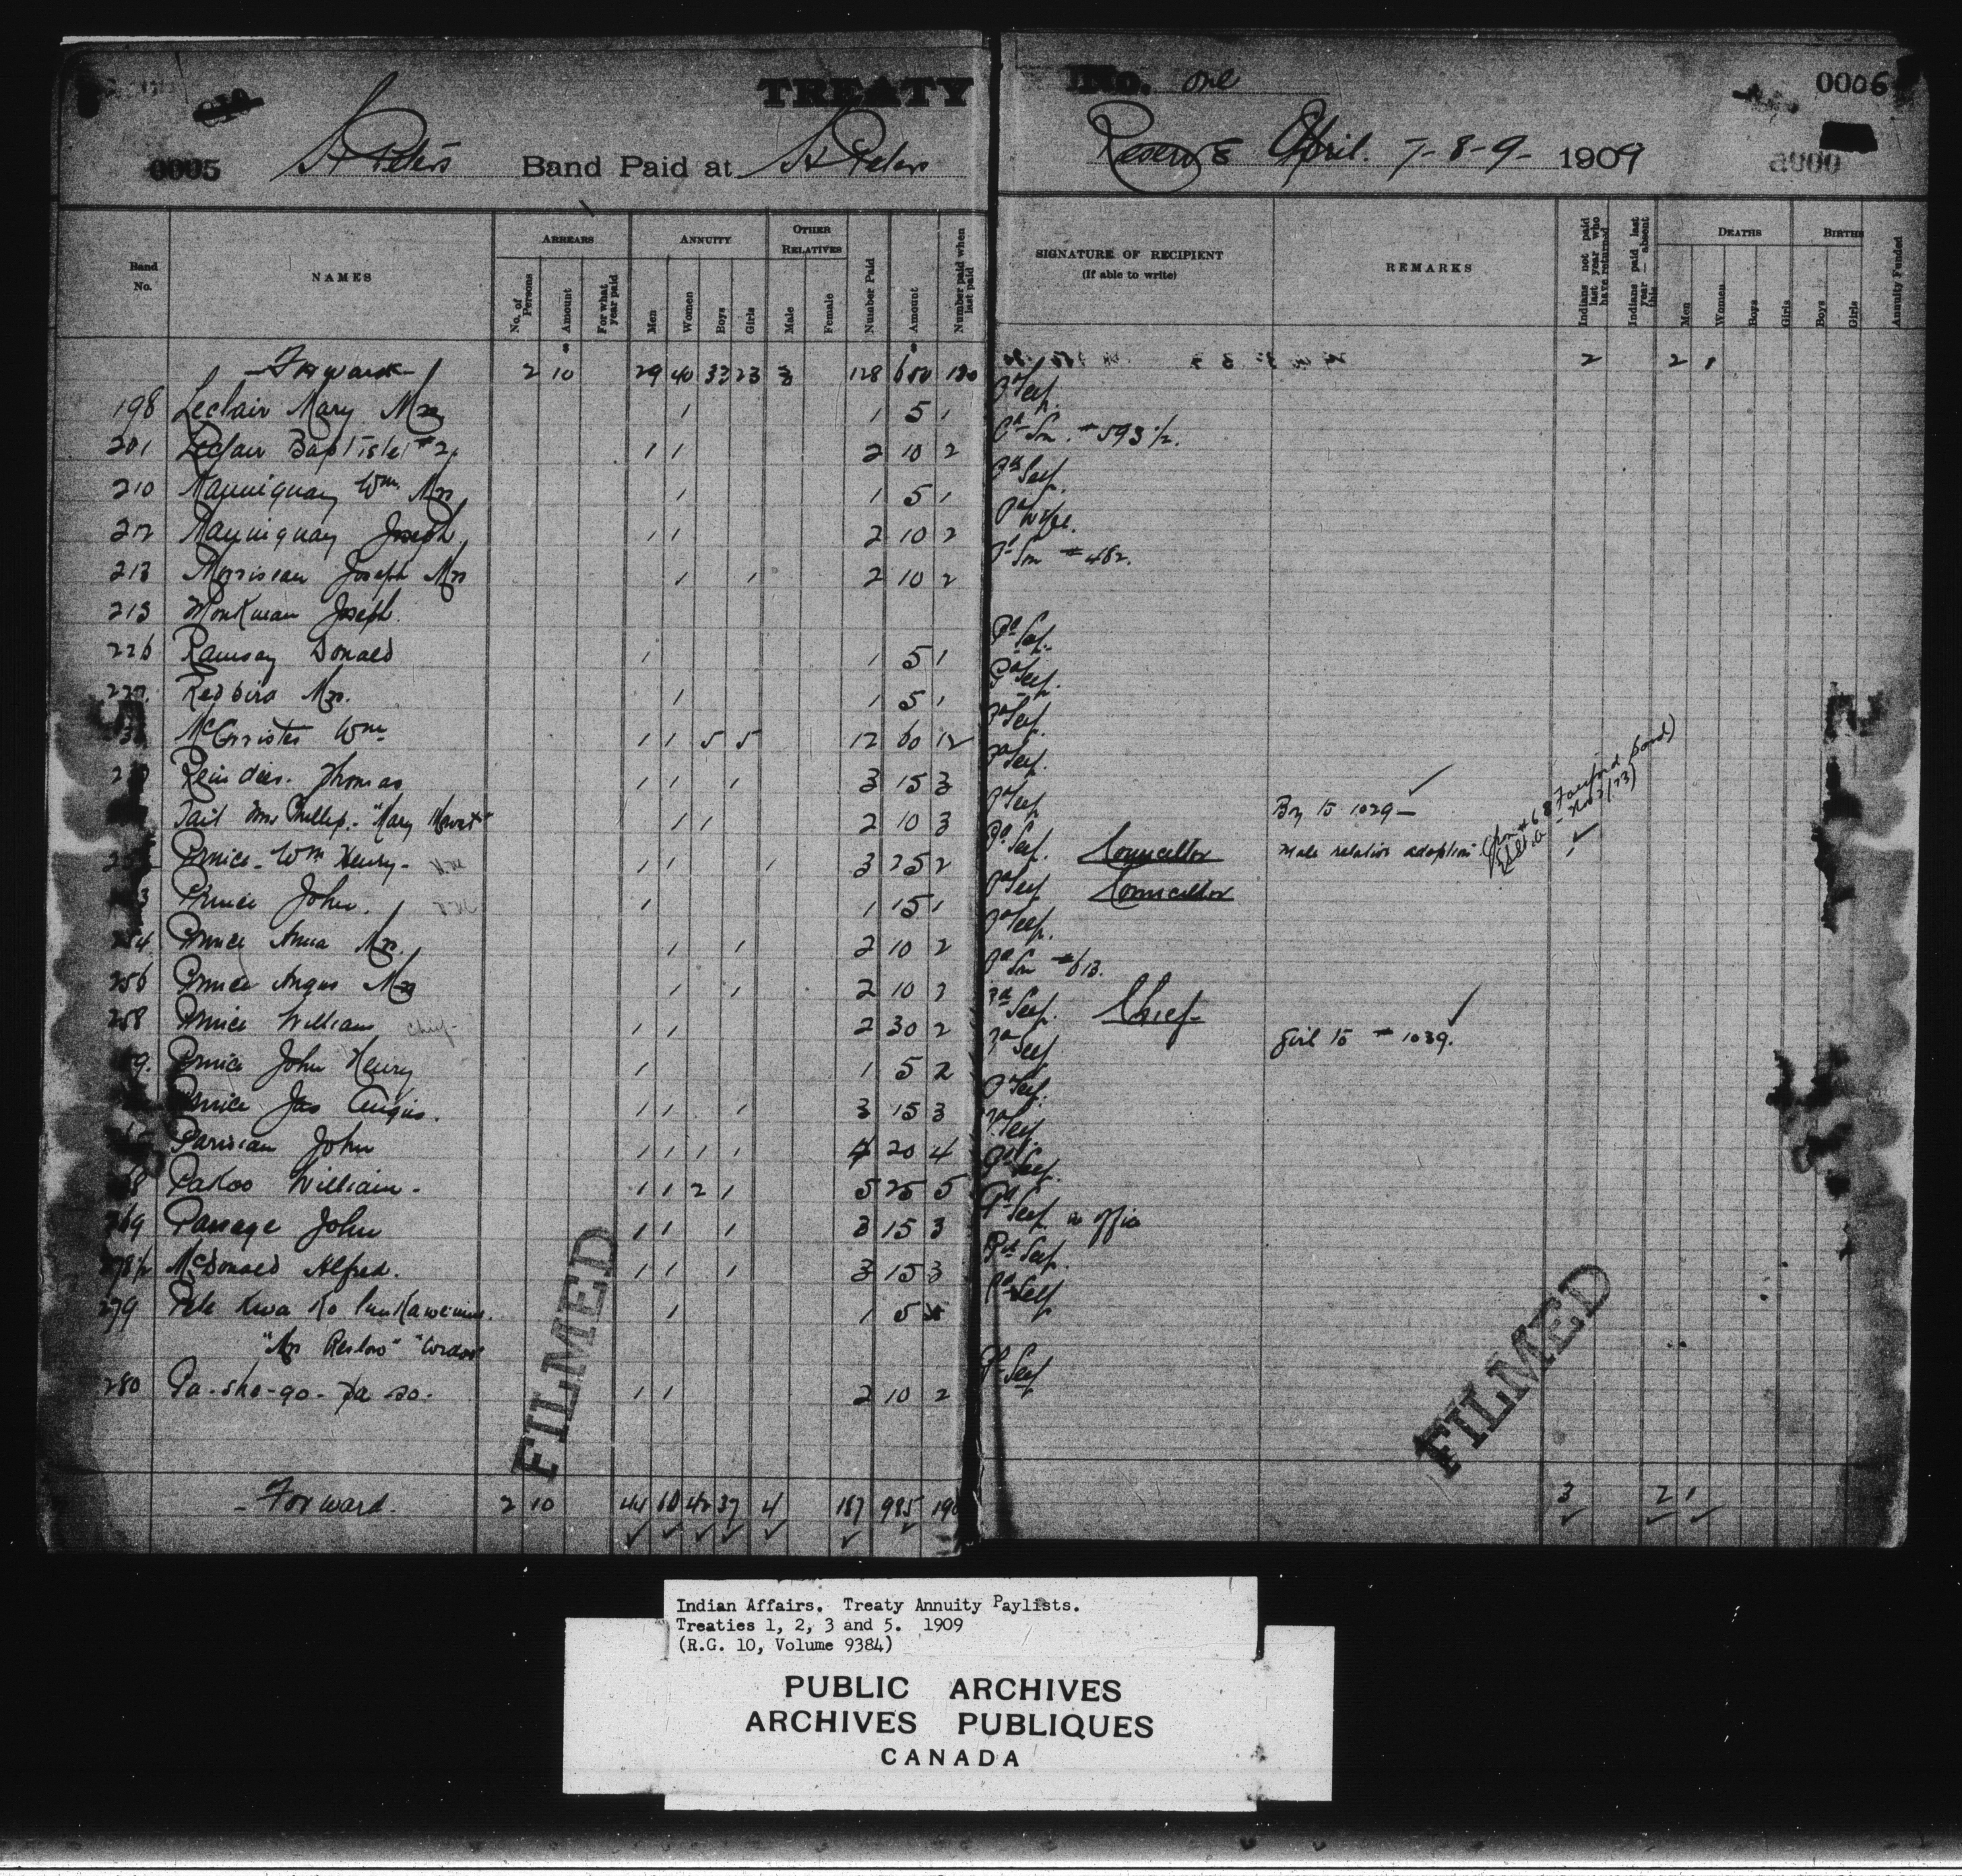 TREATY No. one 0006
0005 St Peters Band Paid at St Peters Reserve April. 7-8-9- 1909
Band No. NAMES ARREARS ANNUITY OTHER RELATIVES Number Paid Amount Number paid when last paid SIGNATURE OF RECIPIENT (If able to write) REMARKS Indians not paid last year who have returned Indians paid last year — absent this DEATHS BIRTHS Annuity Funded
No. of Persons Amount For what year paid Men Women Boys Girls Male Female Men Women Boys Girls Boys Girls
Forward 2 10 29 40 33 23 3 128 650 130 2 2 1
198 Leclair Mary Mrs 1 1 5 1 Pd Self.
201 Leclair Baptiste #2. 1 1 2 10 2 Pd Son. #593 1/2.
210 Wm. Mrs 1 1 5 1 Pd Self.
212 Joseph 1 1 2 10 2 Pd Wife.
213 Morrisseau Joseph Mrs 1 1 2 10 2 Pd Son #482.
215 Monkman Joseph.
226 Ramsay Donald 1 1 5 1 Pd Self.
227. Redbird Mrs. 1 1 5 1 Pd Self.
McCorrister Wm 1 1 5 5 12 60 12 Pd Self.
Thomas 1 1 1 3 15 3 Pd Self.
Tait Mrs Phillip. "Mary 1 1 2 10 3 Pd Self Boy to 1029 —
Prince Wm Henry- 1 1 1 3 25 2 Pd Self. Councillor Male relation adoption 1
Prince John. 1 1 15 1 Pd Self Councillor
254 Prince Anna Mrs. 1 1 2 10 2 Pd Self.
256 Prince Angus Mrs 1 1 2 10 2 Pd Son #613.
258 Prince William Chief- 1 1 2 30 2 Pd Self. Chief
Prince John Henry 1 1 5 2 Pd Self Girl to # 1039.
Prince Jas Angus. 1 1 1 3 15 3 Pd Self.
Parisian John 1 1 1 1 4 20 4 Pd Self
Pakoo William - 1 1 2 1 5 25 5 Pd Self.
269 Passage John 1 1 1 3 15 3 Pd Self in office
278 1/2 McDonald Alfred. 1 1 1 3 15 3 Pd Self.
279 Pete Kwa Ko 1 1 5 Pd Self
"Mrs
280 Pa-sho-go- 1 1 2 10 2 Pd Self
- Forward. 2 10 44 60 42 37 4 187 985 190 3 2 1
FILMED
FILMED
Indian Affairs. Treaty Annuity Paylists.
Treaties 1, 2, 3 and 5. 1909
(R.G. 10, Volume 9384)
PUBLIC ARCHIVES
ARCHIVES PUBLIQUES
CANADA